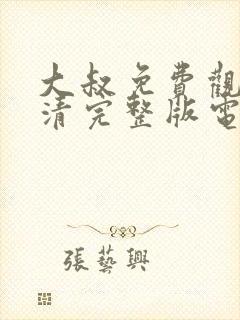 大叔免費觀
清完整版電
張藝興